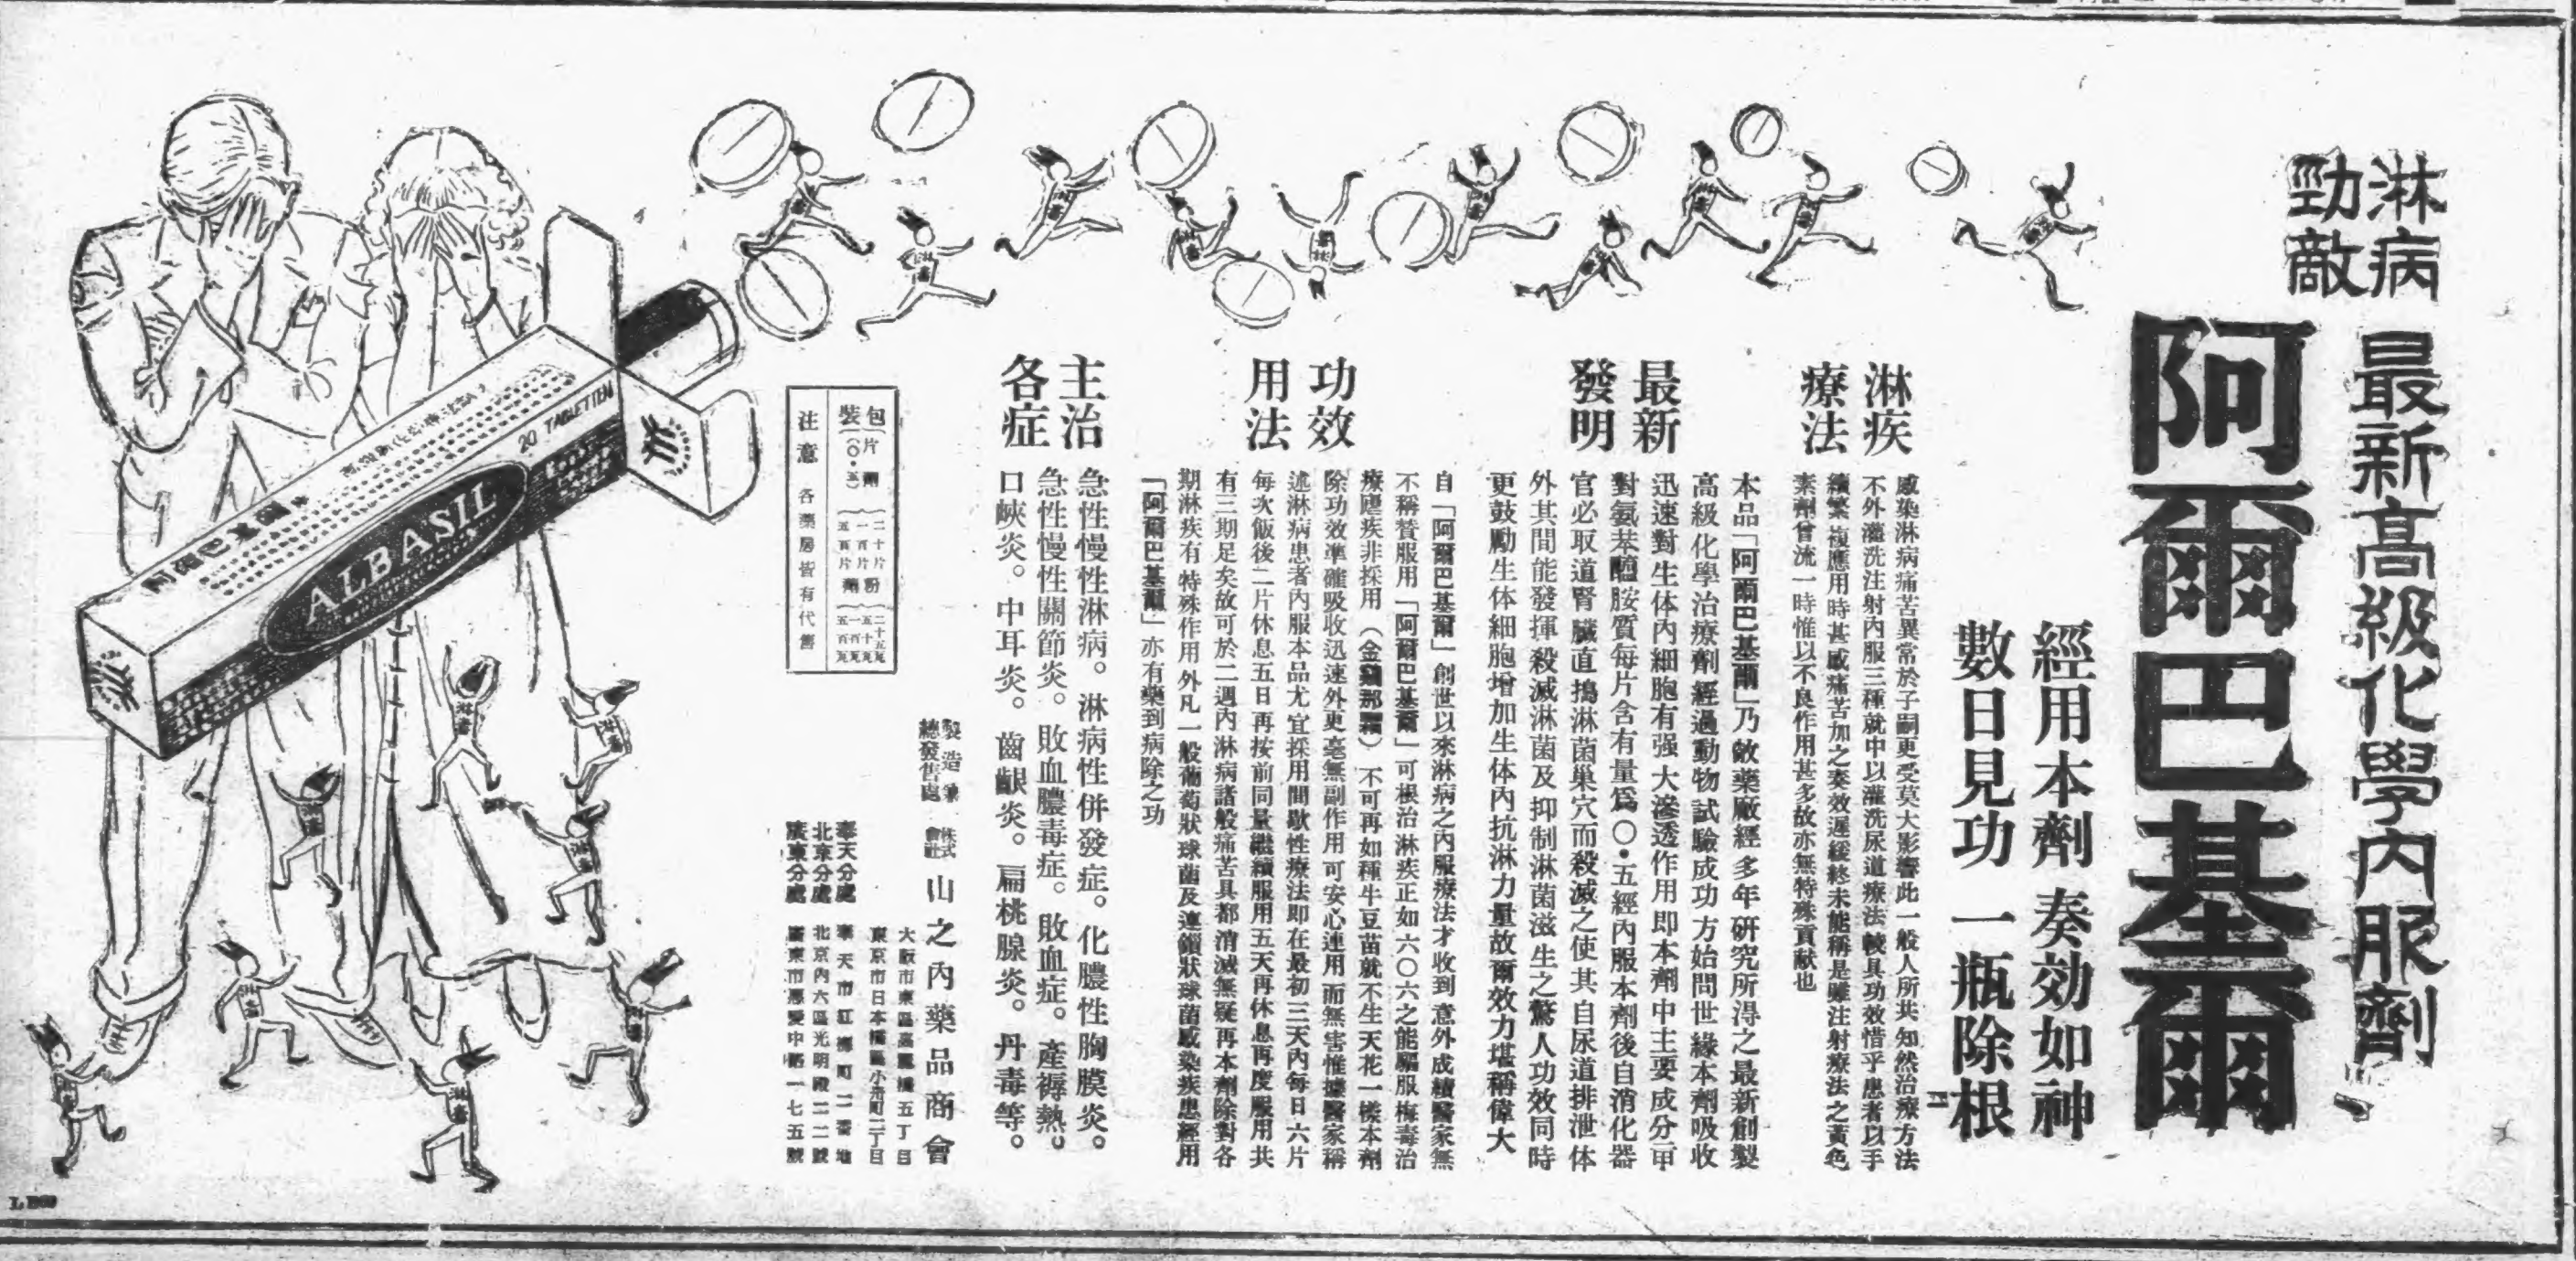 淋病
勁敵
最新高級化學內服劑
阿爾巴基爾
經用本劑 奏効如神
數日見功 一瓶除根
淋疾
療法
感染淋病痛苦異常於子嗣更受莫大影響此一般人所共知然治療方法
不外灌洗注射內服三種就中以灌洗尿道療法較具功效惜乎患者以手
續繁複應用時甚感痛苦加之奏效遲緩終未能稱是雖注射療法之黃色
素劑曾流一時惟以不良作用甚多故亦無特殊貢献也
最新
發明
本品「阿爾巴基爾」乃敝藥廠經多年研究所淂之最新創製
高級化學治療劑經過動物試驗成功方始問世緣本劑吸收
迅速對生体內細胞有强大滲透作用即本劑中主要成分二
對氨苯醯胺質每片含有量爲〇·五經內服本劑後自消化器
官必取道腎臟直搗淋菌巢穴而殺滅之使其自尿道排泄体
外其間能發揮殺滅淋菌及抑制淋菌滋生之驚人功效同時
更鼓勵生体細胞增加生体內抗淋力量故爾效力堪稱偉大
功效
用法
自「阿爾巴基爾」創世以來淋病之內服療法才收到意外成績醫家無
不稱贊服用「阿爾巴基爾」可根治淋疾正如六〇六之能驅服梅毒治
療瘧疾非採用（金鷄那霜）不可再如種牛豆苗就不生天花一樣本劑
除功效準確吸收迅速外更毫無副作用可安心連用而無害惟據醫家稱
述淋病患者內服本品尤宜採用間歇性療法即在最初三天內每日六片
每次飯後二片休息五日再按前同量繼續服用五天再休息再度服用共
有三期足矣故可於二週內淋病諸般痛苦具都消滅無疑再本劑除對各
期淋疾有特殊作用外凡一般葡萄狀球菌及連鎖狀球菌感染疾患經用
「阿爾巴基爾」亦有藥到病除之功
主治
各症
急性慢性淋病。淋病性併發症。化膿性胸膜炎。
急性慢性關節炎。敗血膿毒症。敗血症。產褥熱。
口峽炎。中耳炎。齒齦炎。扁桃腺炎。丹毒等。
製造兼
總發售處
株式
會社
山之內藥品商會
大阪市東區高麗橋五丁目
東京市日本橋區小舟町二丁目
奉天分處 奉天市紅梅町二番地
北京分處 北京內六區光明殿二二號
廣東分處 廣東市惠愛中路一七五號
包裝
片劑
(〇·五)
二十片
一百片
五百片
粉劑
二十五瓦
五十瓦
一百瓦
五百瓦
注意 各藥房皆有代售
阿爾巴基爾
ALBASIL
20 TABLETTEN
淋毒